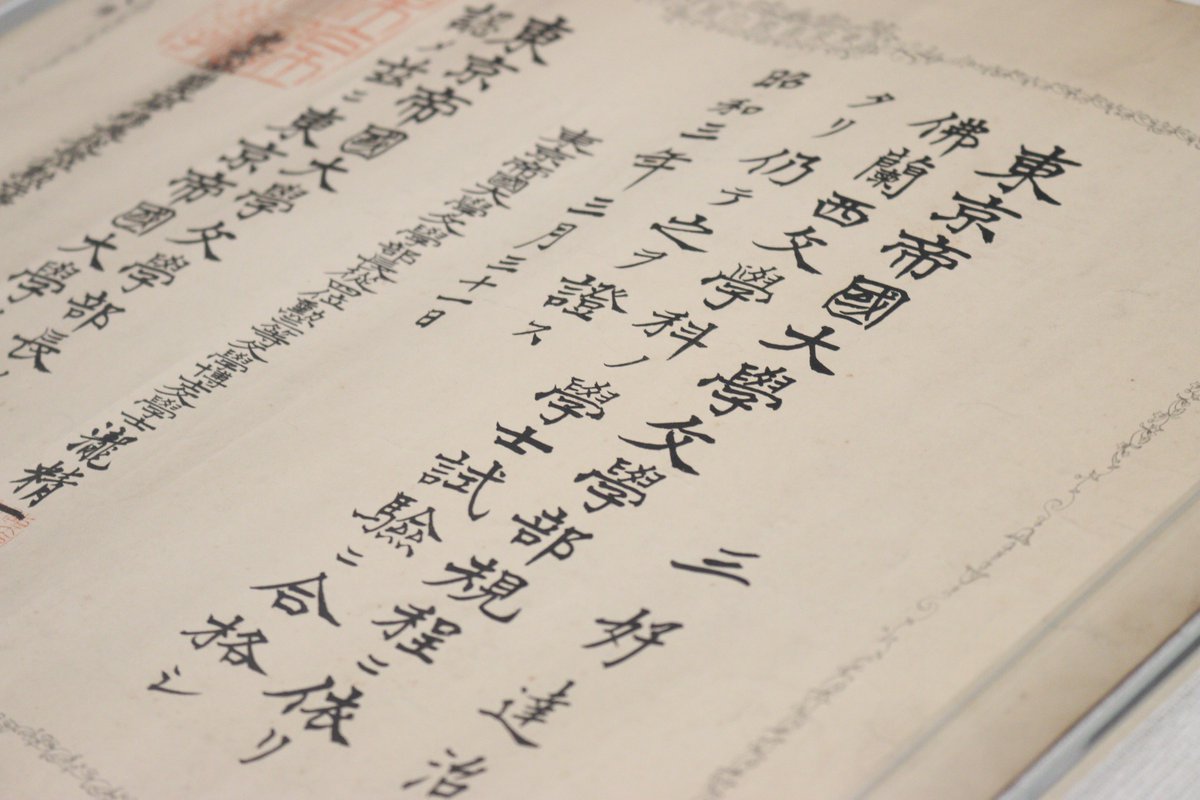 三好達治
東京帝國大學文學部規程ニ依リ
佛蘭西文學科ノ學士試驗ニ合格シ
タリ仍テ之ヲ證ス
昭和三年三月三十一日
東京帝國大學文學部長從四位勲三等文學博士文學士瀧精一
東京帝國大學文學部長
認メ茲ニ東京帝國大學